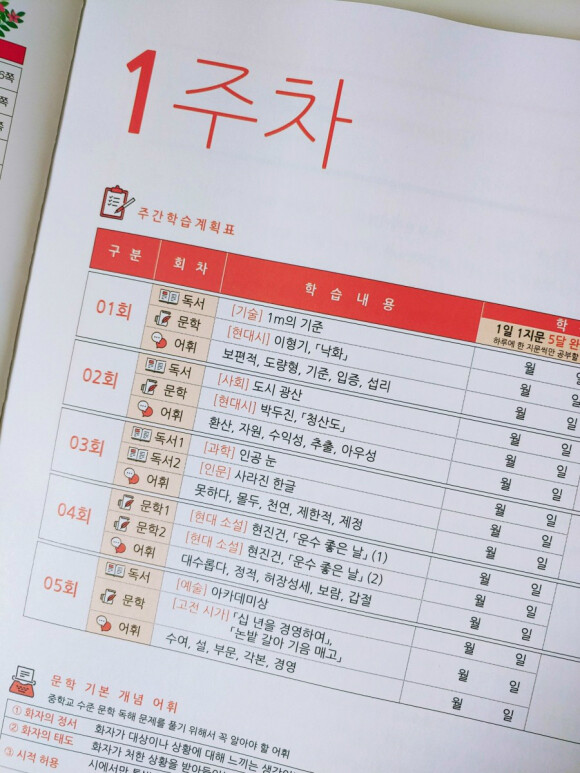 6쪽
쪽
쪽
1주차
주간학습계획표
구분 회차 학습내용 학
1일 1지문 5달 완
하루에 한 지문씩만 공부할
01회 독서 [기술] 1m의 기준 월 일
문학 [현대시] 이형기, 「낙화」 월 일
어휘 보편적, 도량형, 기준, 입증, 섭리 월 일
02회 독서 [사회] 도시 광산 월 일
문학 [현대시] 박두진, 「청산도」 월 일
어휘 환산, 자원, 수익성, 추출, 아우성 월 일
03회 독서1 [과학] 인공 눈 월 일
독서2 [인문] 사라진 한글 월 일
어휘 못하다, 몰두, 천연, 제한적, 제정 월 일
04회 문학1 [현대 소설] 현진건, 「운수 좋은 날」 (1) 월 일
문학2 [현대 소설] 현진건, 「운수 좋은 날」 (2) 월 일
어휘 대수롭다, 정적, 허장성세, 보람, 갑절 월 일
05회 독서 [예술] 아카데미상 월 일
문학 [고전 시가] 「십 년을 경영하여」,
「논밭 갈아 기음 매고」 월 일
어휘 수여, 설, 부문, 각본, 경영 월 일
문학 기본 개념 어휘
중학교 수준 문학 독해 문제를 풀기 위해서 꼭 알아야 할 어휘
① 화자의 정서 화자가 대상이나 상황에 대해 느끼는
② 화자의 태도 화자가 처한 상황을
③ 시적 허용 시에서만